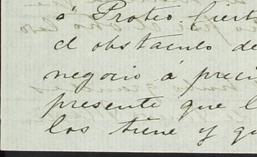 á Proteo
el obstaculo de
negocio á preci
presente que l
los tiene y qu